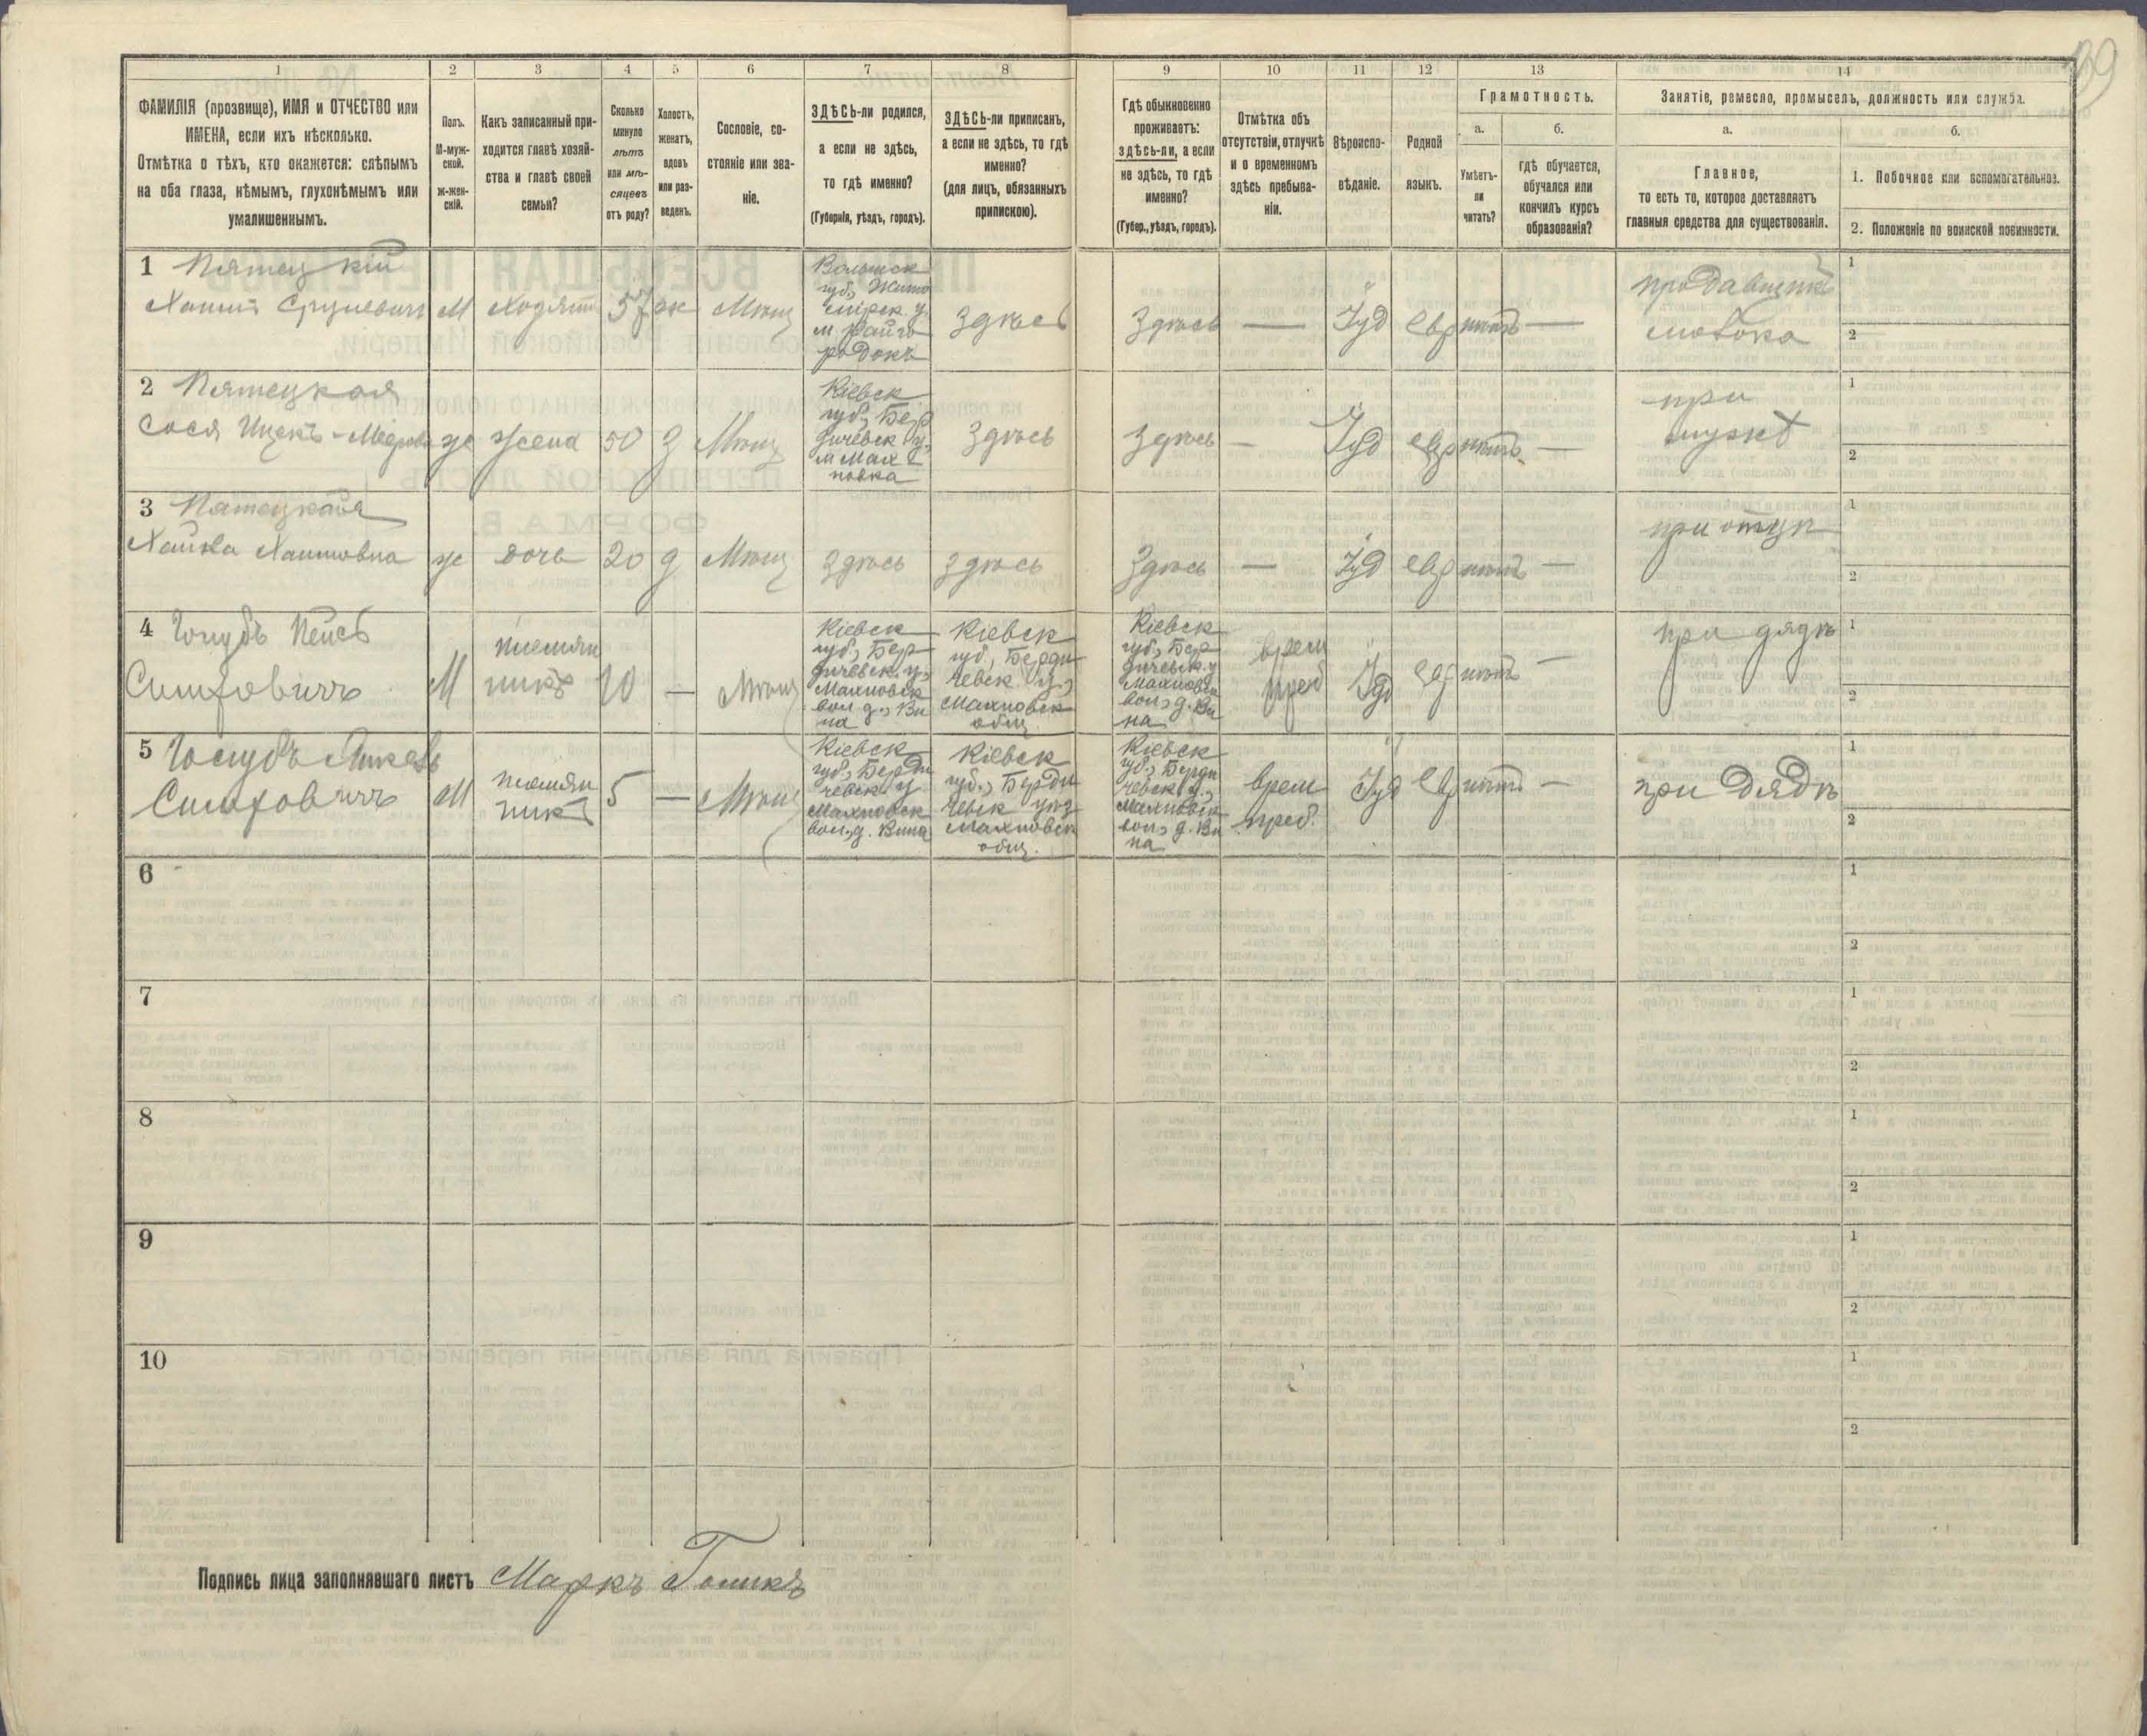 99
1
2
3
4
5
6
7
8
9
10
11
12
13
14
ФАМИЛІЯ (прозвище), ИМЯ и ОТЧЕСТВО или
ИМЕНА, если ихъ нѣсколько.
Отмѣтка о тѣхъ, кто окажется: слѣпымъ
на оба глаза, нѣмымъ, глухонѣмымъ или
умалишеннымъ.
Полъ.
М-муж-
ской.
Ж-жен-
скій.
Какъ записанный при-
ходится главѣ хозяй-
ства и главѣ своей
семьи?
Сколько
минуло
лѣтъ
или мѣ-
сяцевъ
отъ роду?
Холостъ,
женатъ,
вдовъ
или раз-
веденъ.
Сословіе, со-
стояніе или зва-
ніе.
ЗДѢСЬ-ли родился,
а если не здѣсь,
то гдѣ именно?
(Губернія, уѣздъ, городъ).
ЗДѢСЬ-ли приписанъ,
а если не здѣсь, то гдѣ
именно?
(для лицъ, обязанныхъ
припискою).
Гдѣ обыкновенно
проживаетъ:
здѣсь-ли, а если
не здѣсь, то гдѣ
именно?
(Губер., уѣздъ, городъ).
Отмѣтка объ
отсутствіи, отлучкѣ
и о временномъ
здѣсь пребыва-
ніи.
Вѣроиспо-
вѣданіе.
Родной
языкъ.
Грамотность.
а.
Умѣетъ-
ли
читать?
б.
гдѣ обучается,
обучался или
кончилъ курсъ
образованія?
Занятіе, ремесло, промыселъ, должность или служба.
а.
Главное,
то есть то, которое доставляетъ
главныя средства для существованія.
б.
1. Побочное или вспомогательное.
2. Положеніе по воинской повинности.
1 Пятецкій
Хаимъ Сруневичъ
М
Хозяинъ
57
ж
Мѣщ
Волынск
губ, Жито
мірск. у.
м. Райго
родокъ
Здѣсь
Здѣсь
—
Іуд
евр
нѣтъ
—
продавщикъ
молока
1
2
2 Пятецкая
Сося Ицекъ-Меерова
ж
жена
50
З
Мѣщ
Кіевск
губ, Бер
дичевск у,
м Мах
новка
Здѣсь
Здѣсь
—
Іуд
евр
нѣтъ
—
при
мужѣ
1
2
3 Пятецкая
Хайква Хаимовна
ж
дочь
20
д
Мѣщ
здѣсь
здѣсь
Здѣсь
—
Іуд
евр
нѣтъ
—
при отцѣ
1
2
4 Голубъ Пейсъ
Сиифовичъ
М
племян
никъ
10
—
Мѣщ
Кіевск
губ, Бер
дичевск. у,
Махновск
вол. д., Ви
на
Кіевск
губ, Берди
чевск у.,
Махновск
общ.
Кіевск
губ, Бер
дичевск. у
Махновск
вол, д. Ви
на
врем
преб
Іуд
евр
нѣтъ
—
при дядѣ
1
2
5 Голубъ Янкель
Сиифовичъ
М
племян
никъ
5
—
Мѣщ
Кіевск
губ, Берди
чевск у.
Махновск
вол., д. Вина
Кіевск
губ., Берди
чевск уѣз
Махновск
общ.
Кіевск
губ., Берди
чевск у.,
Махновск
вол, д. Ви
на
врем
преб.
Іуд
евр
нѣтъ
—
при дядѣ
1
2
6
1
2
7
1
2
8
1
2
9
1
2
10
1
2
Подпись лица заполнявшаго листъ Маркъ Голикъ